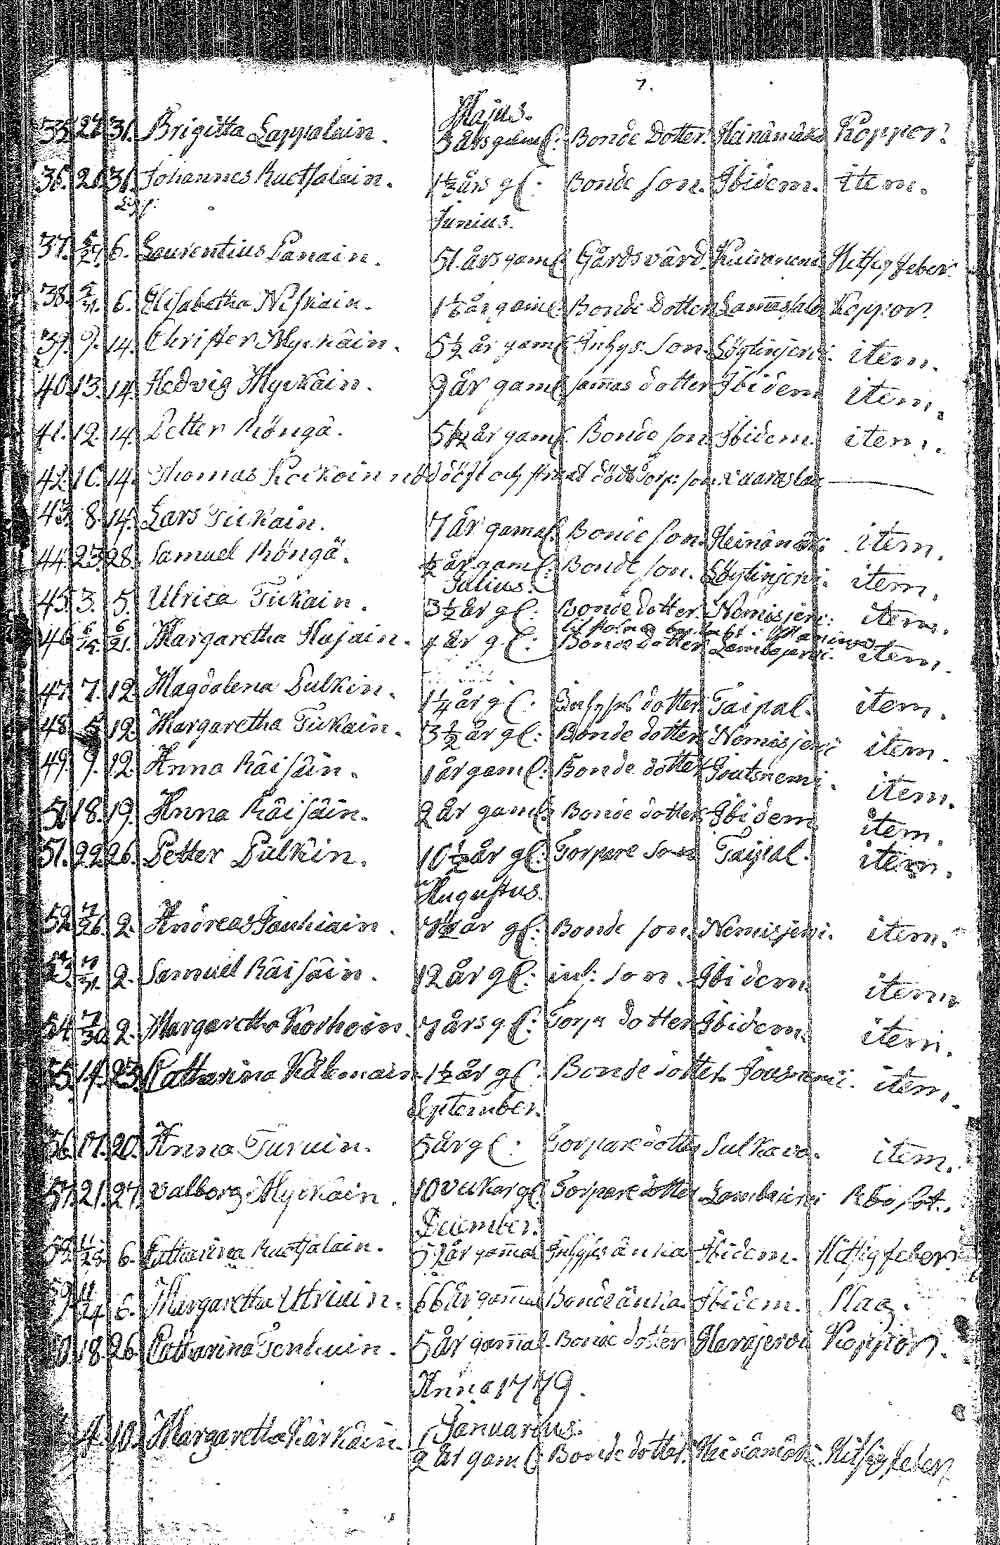 7.
Majus.
35. 27. 31. Brigitta Lappalain. 3 års gamel: Bonde Dotter. Heinämäki Koppor.
36. 26. 31. Johannes Ruotsalain. 1½ års gl: Bonde son. Ibidem. item.
Junius.
37. 5/27. 6. Laurentius Panain. 51. års gamel Gårdsvärd. Hitsig feber.
38. 5/31. 6. Elisabetha Niskain. 1½ år gamel. Bonde Dotter Koppor.
39. 9. 14. Christer Myckäin. 5½ år gamel Inhys. Son. Löytinjervi. item.
40. 13. 14. Hedvig Myckäin. 9 år gamel samas dotter Ibidem item.
41. 12. 14. Petter Köngä. 5½ år gamel. Bonde son Ibidem. item.
42. 10. 14. Thomas döpt och död Torp: son.
43. 8. 14. Lars Tickain. 7 år gamel. Bonde son. Heinämäki item.
44. 23. 28. Samuel Köngä. ½ år gaml: Bonde son. Löytinjervi. item.
Julius.
45. 3. 5. Ulrica Tickain. 3½ år gl: Bonde dotter. Nemisjervi. item.
46. 6/15. 6/21. Margaretha Hajain. 4 år gl: Bonde dotter Lambajervi. item.
47. 7. 12. Magdalena Pulkin. 1¼ år gl: Inhyses dotter Taipal. item.
48. 5 12. Margaretha Tickain. 3½ år gl: Bonde dotter Nemisjervi item.
49. 9. 12. Anna Räisäin. 1 år gaml: Bonde dotter Joutsnemi. item.
50. 18. 19. Anna Räisäin. 2 år gaml: Bonde dotter Ibidem item.
51. 22. 26. Petter Pulkin. 10½ år gl: Torpare Son Taipal. item.
Augustus.
52. 7/26. 2. Andreas Jauhiain. 7½ år gl: Bonde son. Nemisjervi. item.
53. 7/31. 2. Samuel Räisäin. 12 år gl: inh: son. Ibidem item
54. 7/30. 2. Margaretha Korhoin. 7 års gl: Torp: dotter Ibidem. item.
55. 14. 23. Catharina 1½ år gl: Bonde dotter item.
September.
56. 17. 20. Anna Turuin. 5 år gl: Torpare dotter Sulkava. item.
57. 21. 27. Valborg Myckäin. 10 veckor gl Torpare dotter Lambaiervi
December.
58. 11/25 6. Catharina Ruotsalain. 52 år gamal Inhyses änka Ibidem. Hitsig feber.
59. 11/24 6. Margaretha Utriain. 66 år gamal Bonde änka. Ibidem. Slag.
60. 18. 26. Catharina Tenhuin. 5 år gamal. Bonde dotter Harajervi Koppor.
Anno 1779.
Januarius.
1. 4. 10. Margaretha Kärkäin. ½ år gaml: Bonde dotter. Heinämäki. Hitsig feber